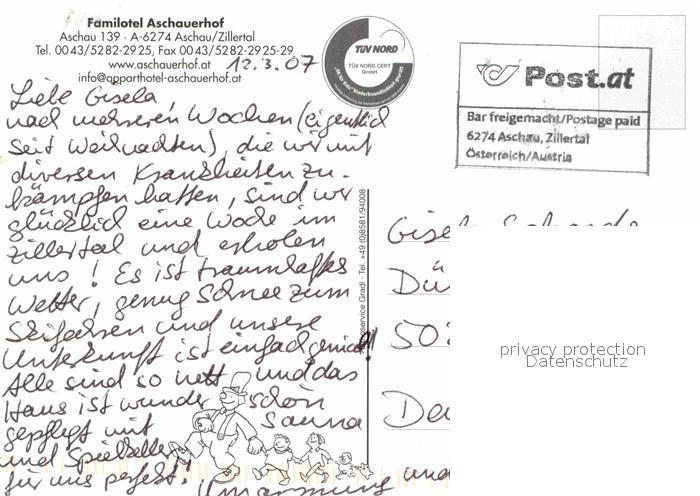 Familotel Aschauerhof
Aschau 139 · A-6274 Aschau/Zillertal
Tel. 0043/5282-2925, Fax 0043/5282-2925-29
www.aschauerhof.at
info@apparthotel-aschauerhof.at
12.3.07
TÜV NORD
TÜV NORD CERT
GmbH
Post.at
Bar freigemacht/Postage paid
6274 Aschau, Zillertal
Österreich/Austria
Liebe Gisela,
nach mehreren Wochen (eigentlich
seit Weihnachten), die wir mit
diversen Krankheiten zu-
kämpfen hatten, sind wir
glücklich eine Woche im
Zillertal und erholen
uns! Es ist traumhaftes
Wetter, genug Schnee zum
Skifahren und unsere
Unterkunft ist einfach genial!!
Alle sind so nett und das
Haus ist wunderschön
gepflegt mit Sauna
und Spielkeller
für uns perfekt!
Umarmung
Gradl · Tel. +49 (0)8581/94008
Gisela
Dü
50
privacy protection
Datenschutz
und